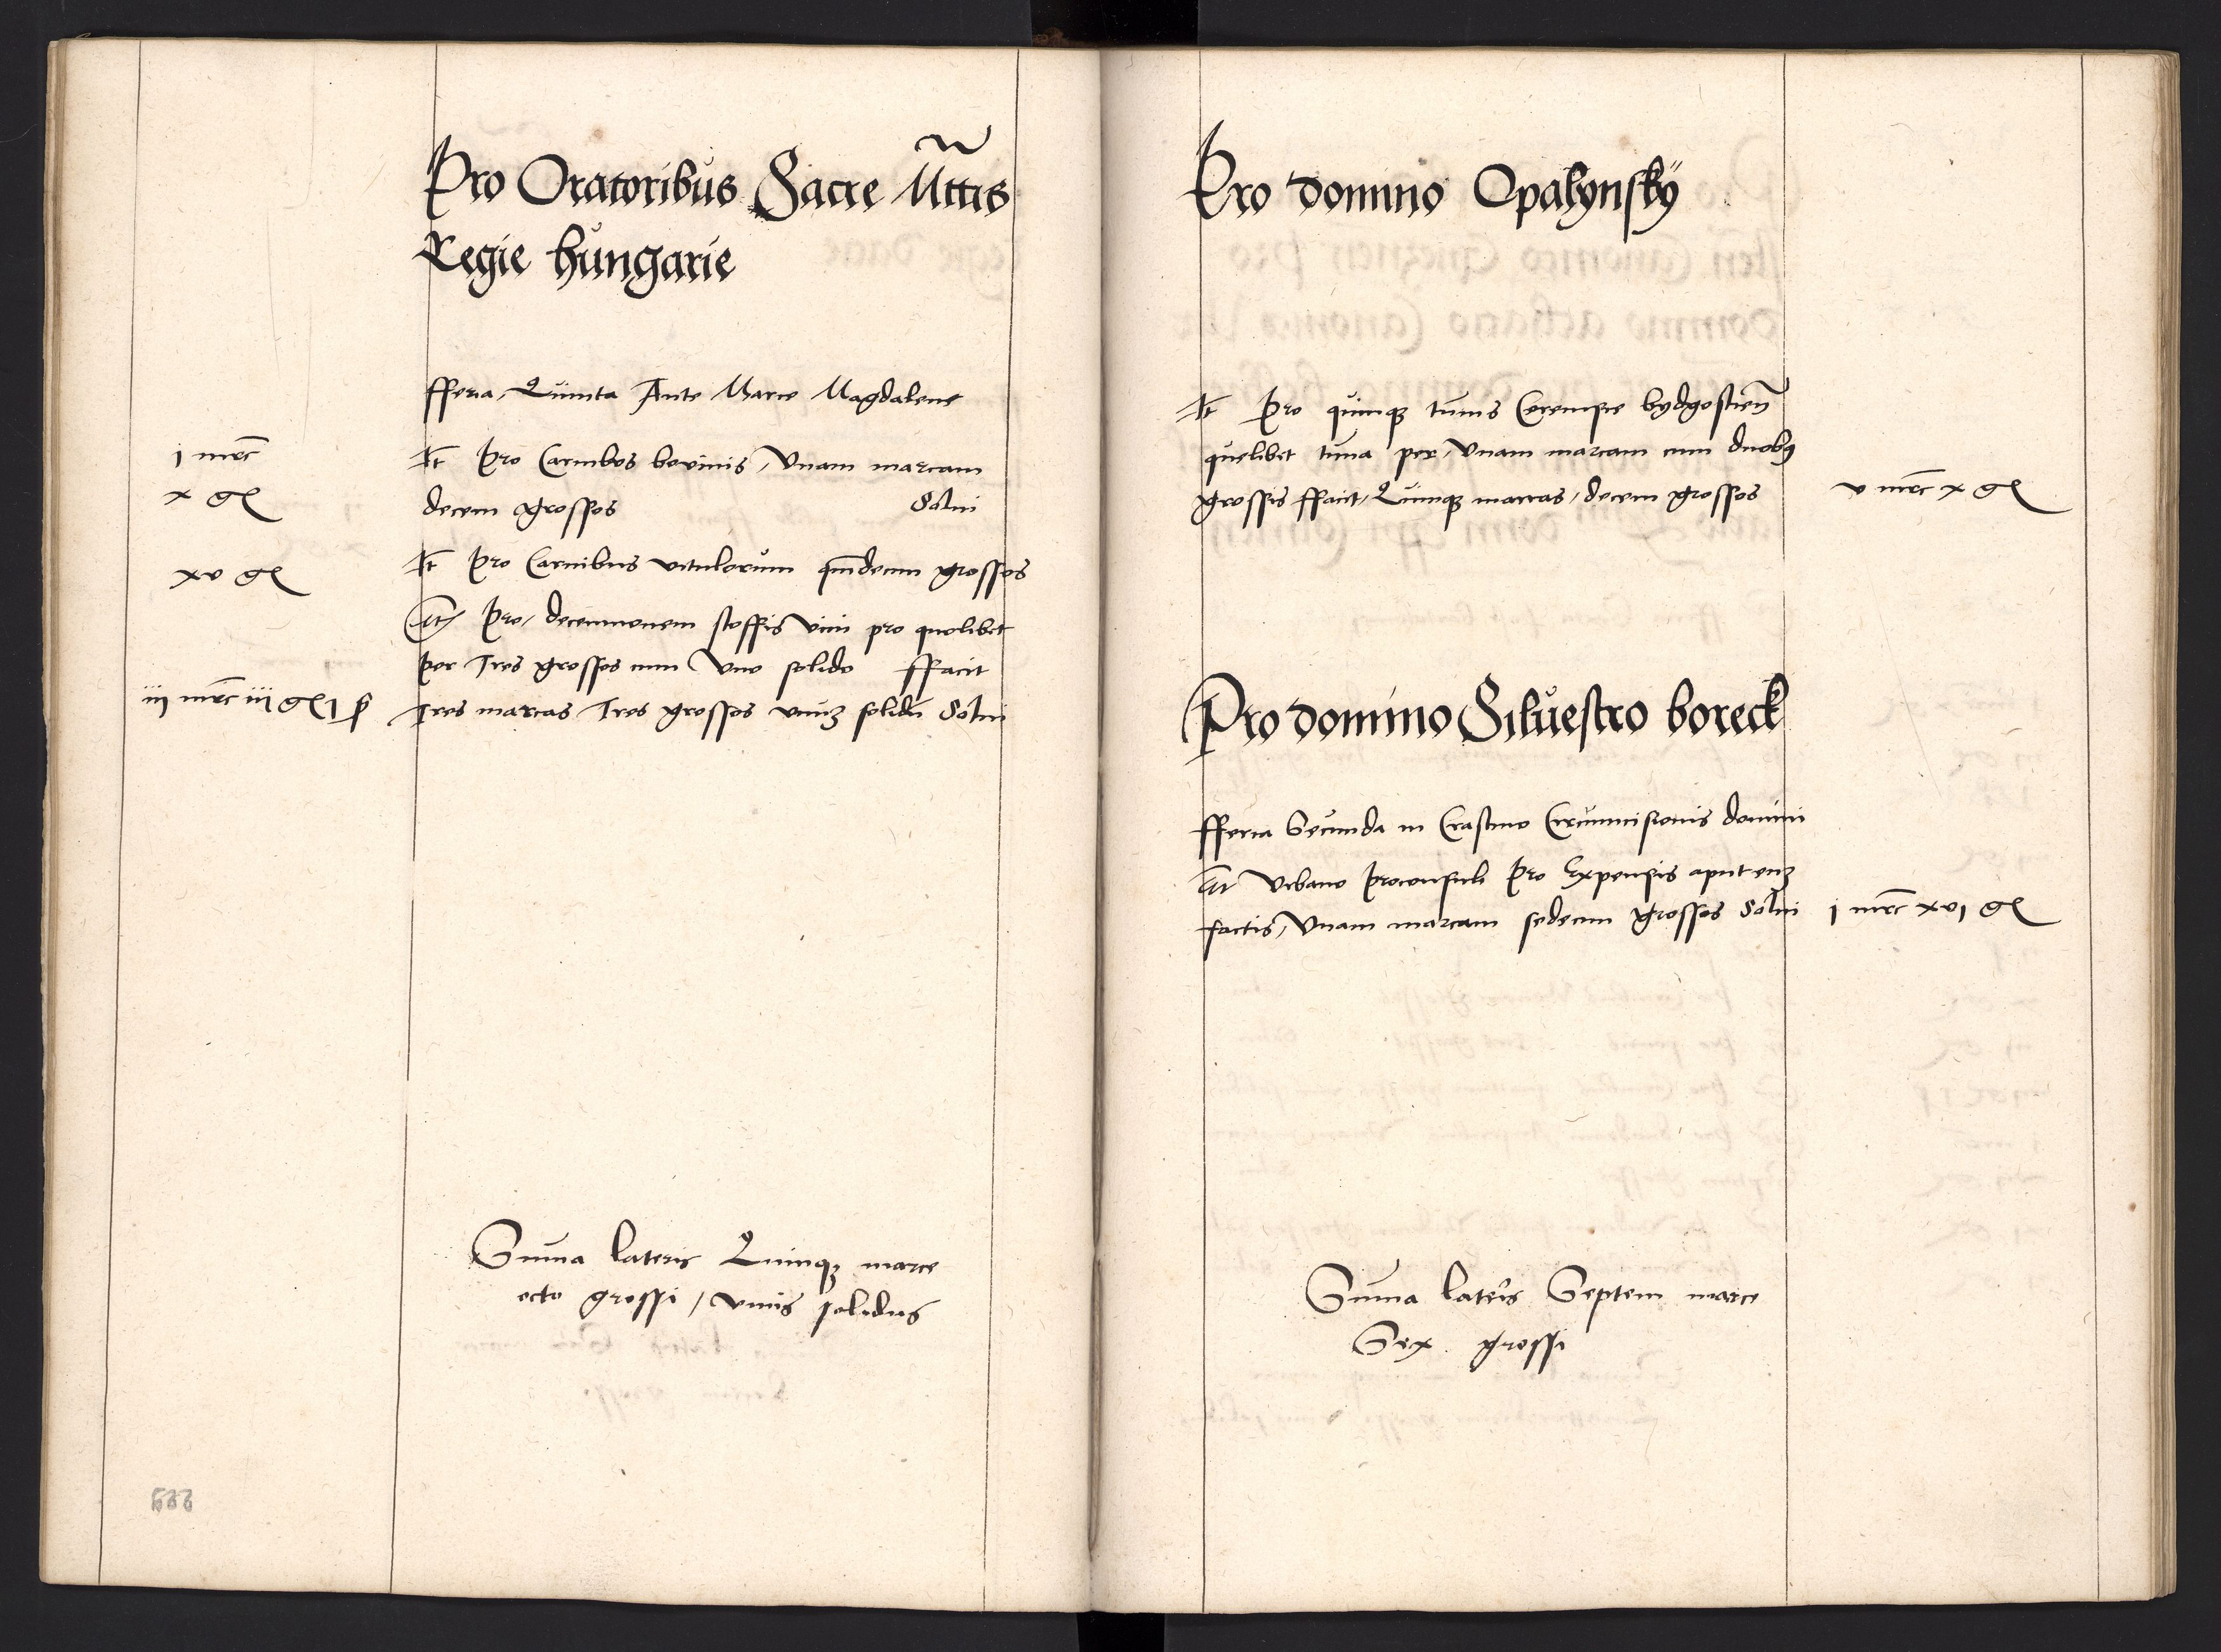 Pro Oratoribus Sacre Mttis
Regie hungarie
fferia Quinta Ante Marie Magdalene
j mrc
It Pro Carnibus bovinis Unam marcam
x gr
decem grossos Solui
xv gr
It Pro Carnibus vitulorum quindecim grossos
It Pro decemnovem stoffis vini pro quolibet
per Tres grossos cum Uno solido ffacit
iij mrc iij gr 1 ß
Tres marcas Tres grossos unum solidu Solui
Suma lateris Quinque marce
octo grossi / unus solidus
Pro domino Opalynsky
It Pro quinque tunis Cerevisie bydgostien
quelibet tuna per Unam marcam cum duobus
grossis ffacit Quinque marcas decem grossos
v mrc x gr
Pro domino Siluestro boreck
fferia Secunda in Crastino Circumcisionis domini
It Urbano Proconsuli Pro Expensis aput eum
factis Unam marcam sedecim grossos Solui
j mrc xvj gr
Suma lateris Septem marce
Sex grossi